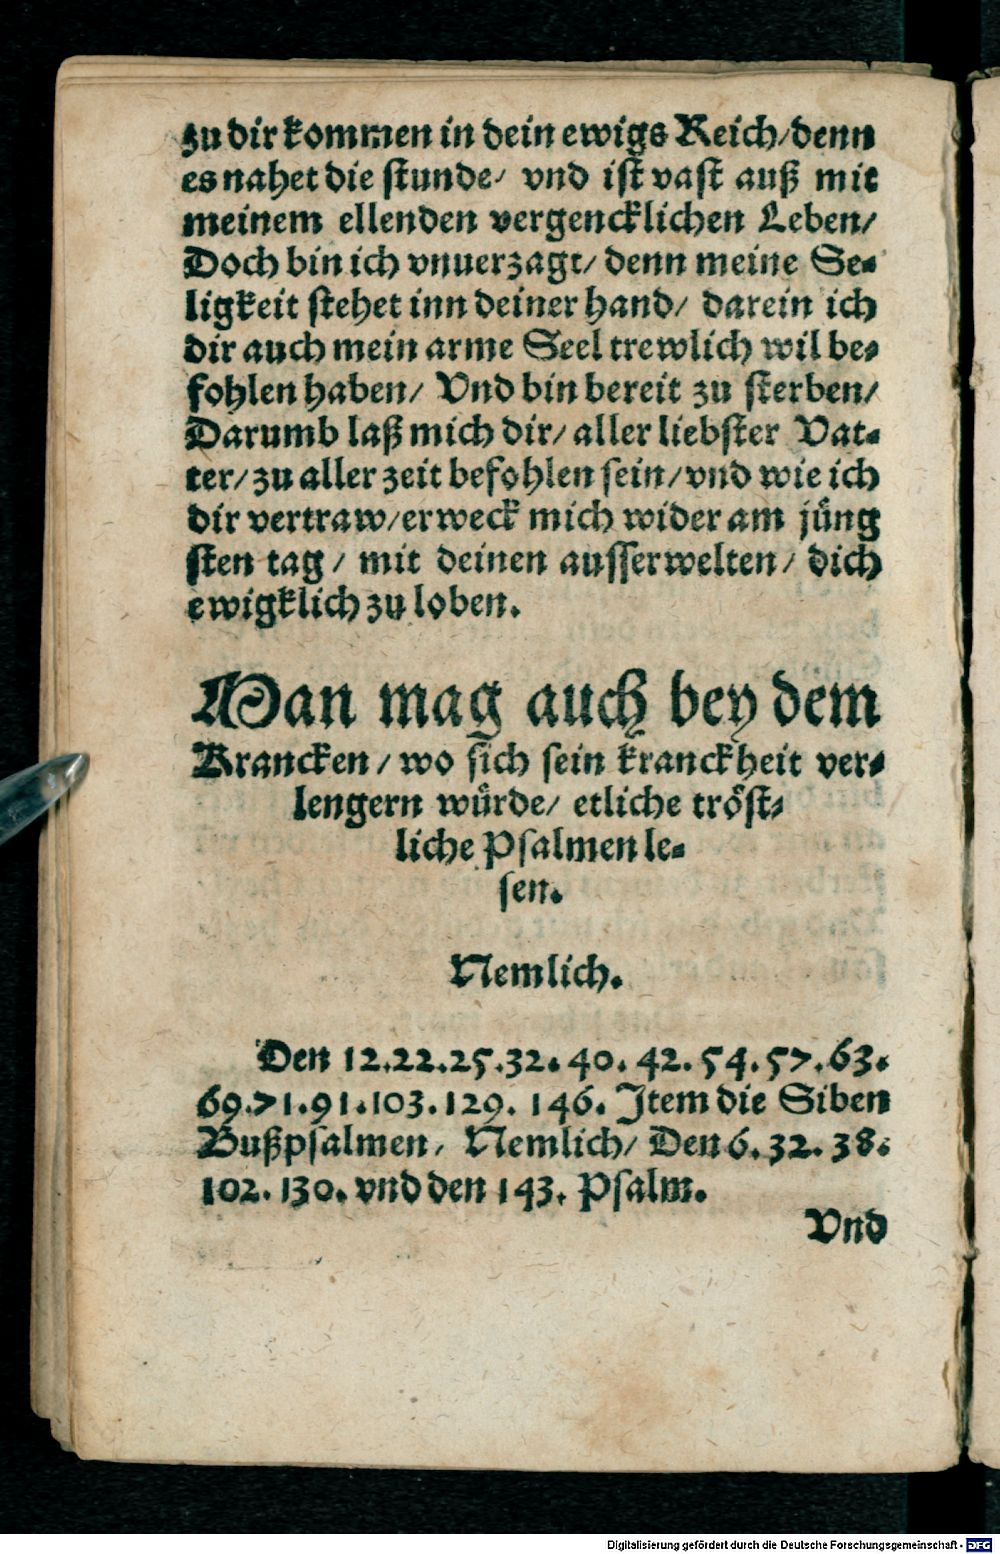 zu dir kommen in dein ewigs Reich/denn
es nahet die stunde/ vnd ist vast auß mit
meinem ellenden vergencklichen Leben/
Doch bin ich vnuerzagt/ denn meine Se-
ligkeit stehet inn deiner hand/ darein ich
dir auch mein arme Seel trewlich wil be-
fohlen haben/ Vnd bin bereit zu sterben/
Darumb laß mich dir/ aller liebster Vat-
ter/ zu aller zeit befohlen sein/ vnd wie ich
dir vertraw/ erweck mich wider am jüng
sten tag/ mit deinen ausserwelten/ dich
ewigklich zu loben.
Man mag auch bey dem
Krancken/ wo sich sein kranckheit ver-
lengern würde/ etliche tröst-
liche Psalmen le-
sen.
Nemlich.
Den 12.22.25.32.40.42.54.57.63.
69.71.91.103.129.146. Item die Siben
Bußpsalmen/ Nemlich/ Den 6.32.38.
102.130. vnd den 143. Psalm.
Vnd
Digitalisierung gefördert durch die Deutsche Forschungsgemeinschaft - DFG